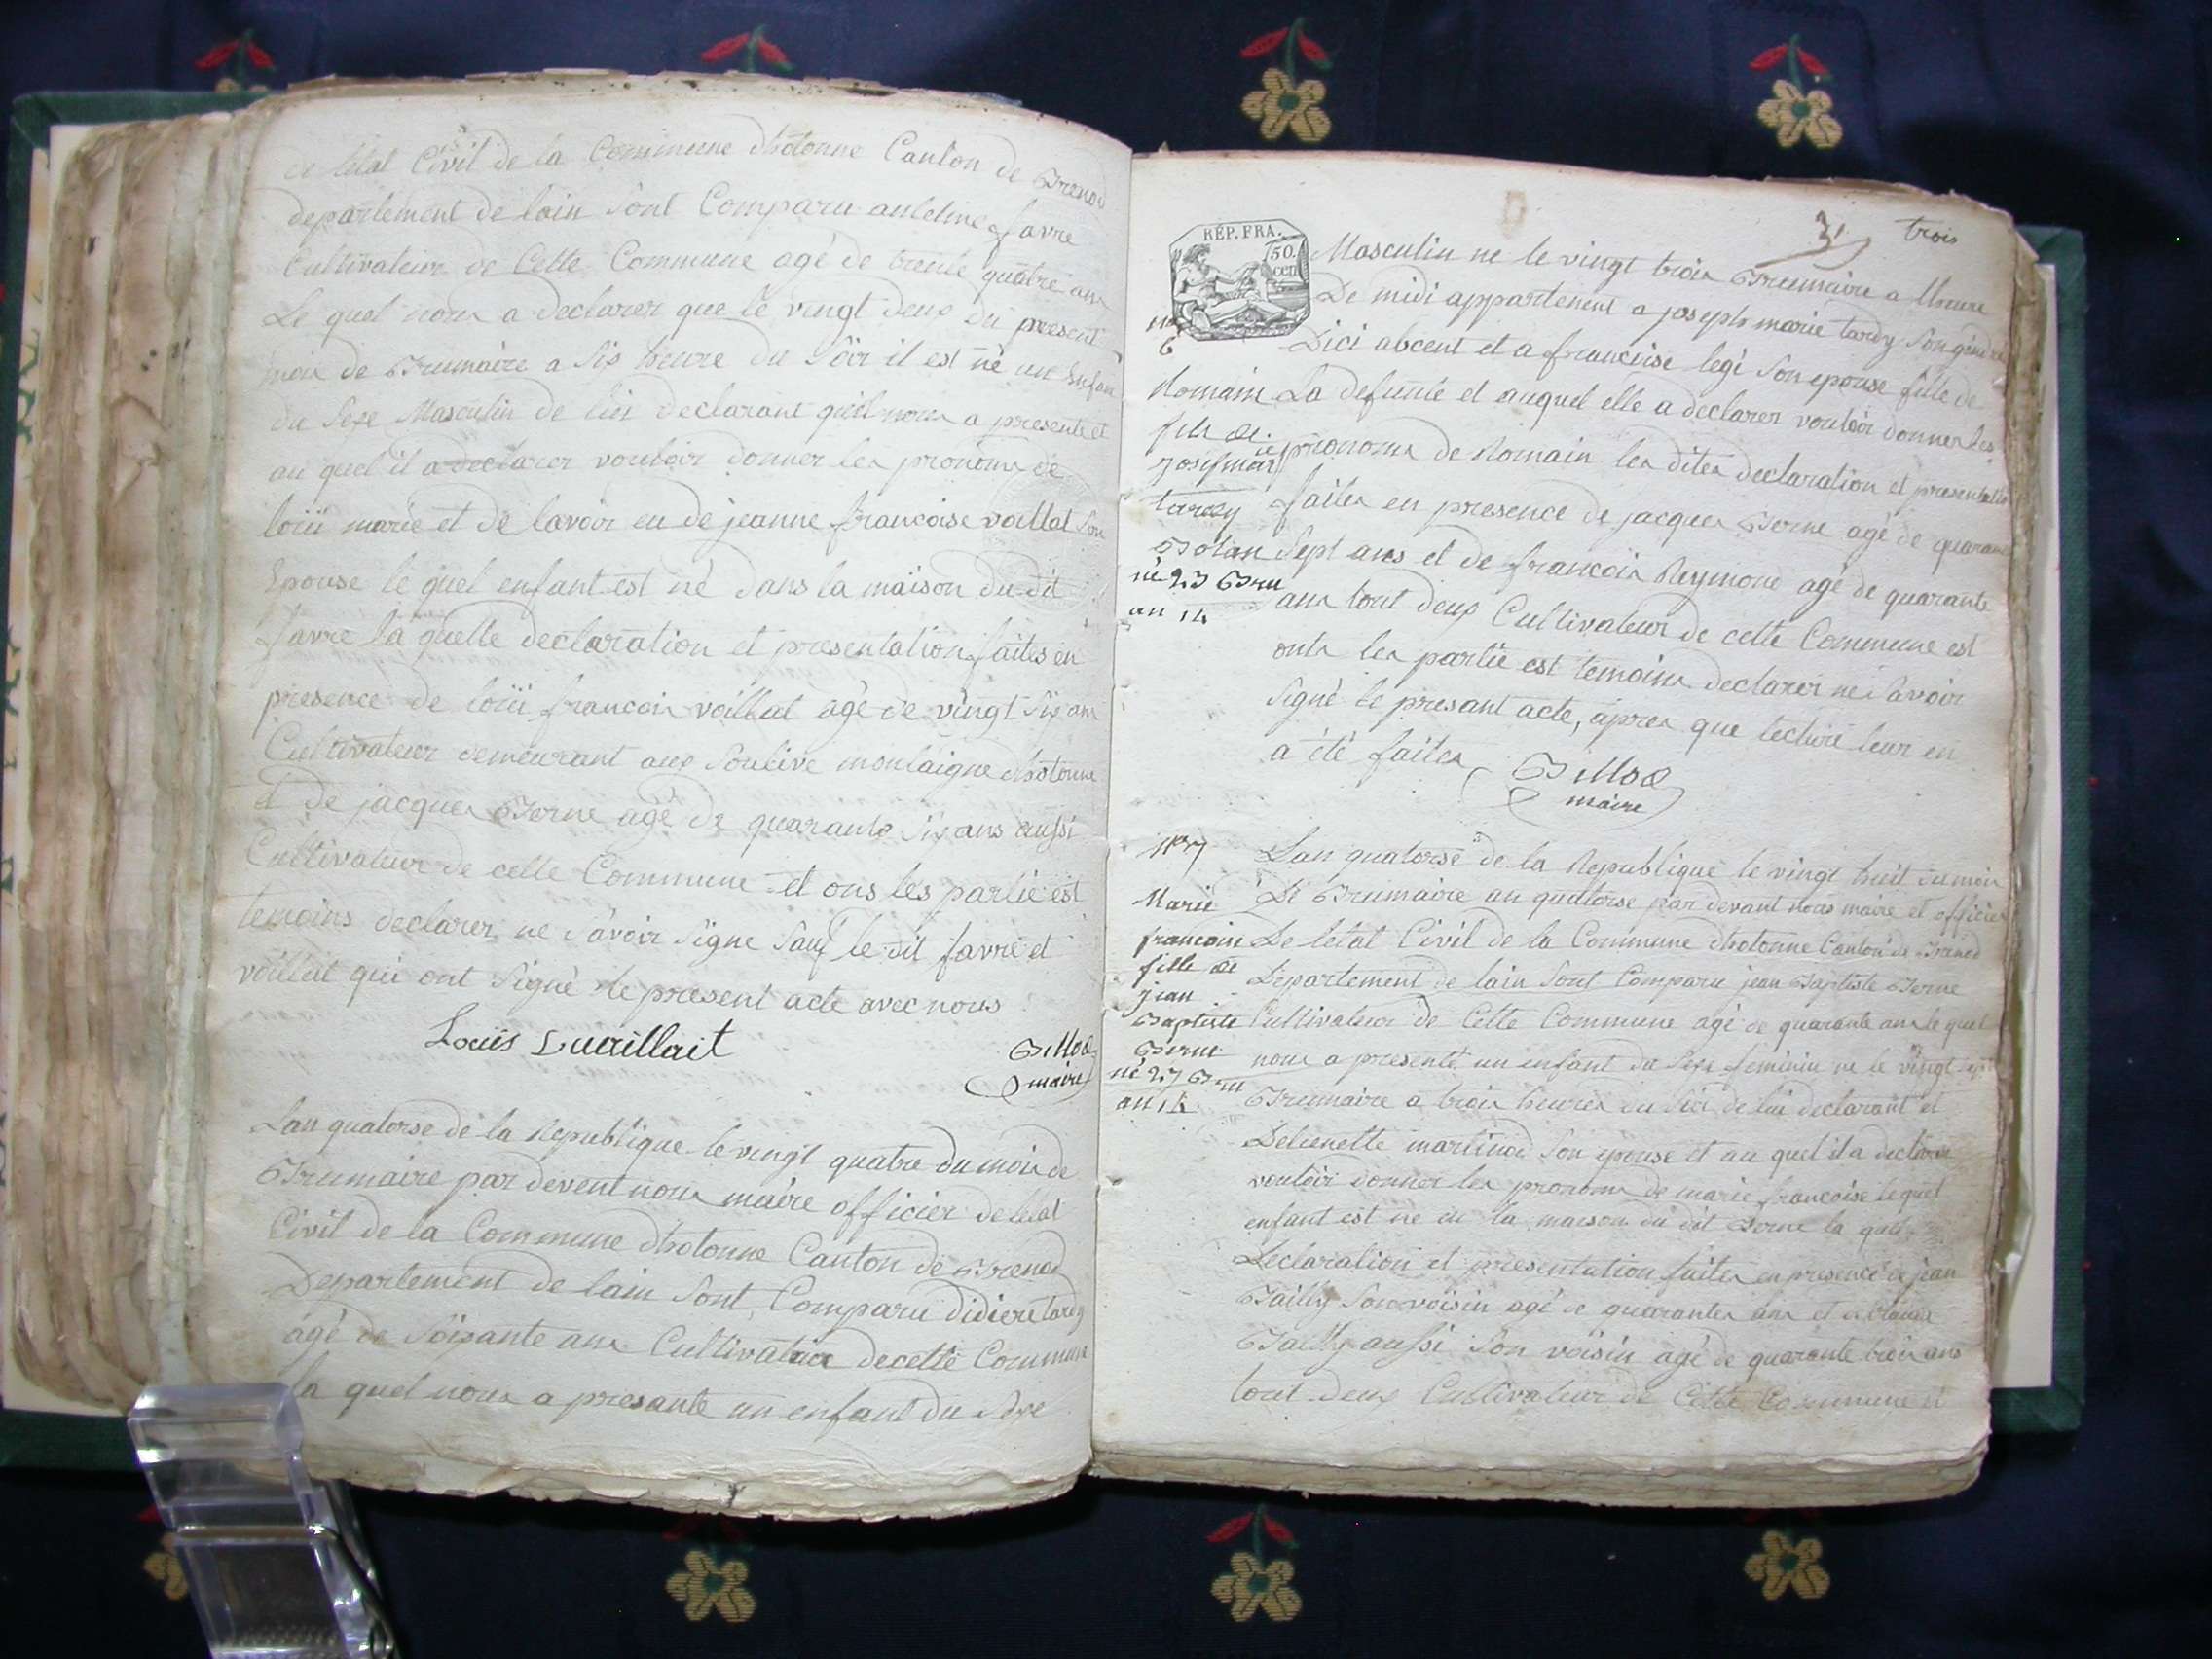 de letat Civil de la Commune dhotonne Canton de Brenod
departement de lain sont Comparu antelme favre
Cultivateur de Cette Commune agé de trente quatre ans
Le quel nous a declarer que le vingt deux du present
mois de Brumaire a six heure du soir il est né un Enfant
du sexe Masculin de lui declarant quil nous a presenté et
au quel il a declarer vouloir donner les pronoms de
loüi marie et de lavoir eu de jeanne francoise vallat son
Epouse le quel enfant est né dans la maison du dit
favre la quelle declaration et presentation faites en
presence de loüi francois voillat agé de vingt six ans
Cultivateur demeurant aux soulive montaigne dhotonne
et de jacques Berne agé de quarante six ans aussi
Cultivateur de cette Commune et ons les partie est
temoins declarer ne savoir signe sauf le dit favre et
voillat qui ont signé le present acte avec nous
Louis Lvaillait
Billod
maire
Lan quatorse de la Republique le vingt quatre du mois de
Brumaire par devent nous maire officier de letat
Civil de la Commune dhotonne Canton de Brenod
Departement de lain sont Comparu didiere tardy
agé de soixante ans Cultivateur de cette Commune
la quel nous a presante un enfant du sexe
31 trois
RÉP. FRA.
50.
cen
Masculin ne le vingt trois Brumaire a lheure
De midi appartenent a joseph marie tardy son gendre
Dici abcent et a francoise legé son epouse fille de
La defunte et auquel elle a declarer vouloir donner les
pronoms de Romain les dites declaration et presentation
faites en presence de jacques Berne agé de quarante
sept ans et de francois Reymond agé de quarante
ans tout deux Cultivateur de cette Commune est
onts les partie est temoins declarer ne savoir
signé le presant acte, apres que lecture leur en
a été faites
Billod
maire
no
6
Romain
fils de
josef marie
tardy
Bolan
né 23 Bru
an 14
no 7
Marie
francoise
fille de
jean
Baptiste
Berne
né 27 Bru
an 14
Lan quatorse de la Republique le vingt huit du mois
De Brumaire an quatorse par devant nous maire et officier
De letat Civil de la Commune dhotonne Canton de Brenod
Departement de lain sont Comparu jean Baptiste Berne
Cultivateur de Cette Commune agé de quarante ans le quel
nous a presenté un enfant du sexe feminin ne le vingt sept
Brumaire a trois heures du soir de lui declarant et
Detienette martinod son epouse et au quel il a declarer
vouloir donner les pronoms de marie francoise le quel
enfant est ne en la maison du dit Berne la quel
Declaration et presentation faites en presence de jean
Bailly son voisin agé de quarantes ans et de Claude
Bailly aussi son voisin agé de quarante trois ans
tout deux Cultivateur de Cette Commune et